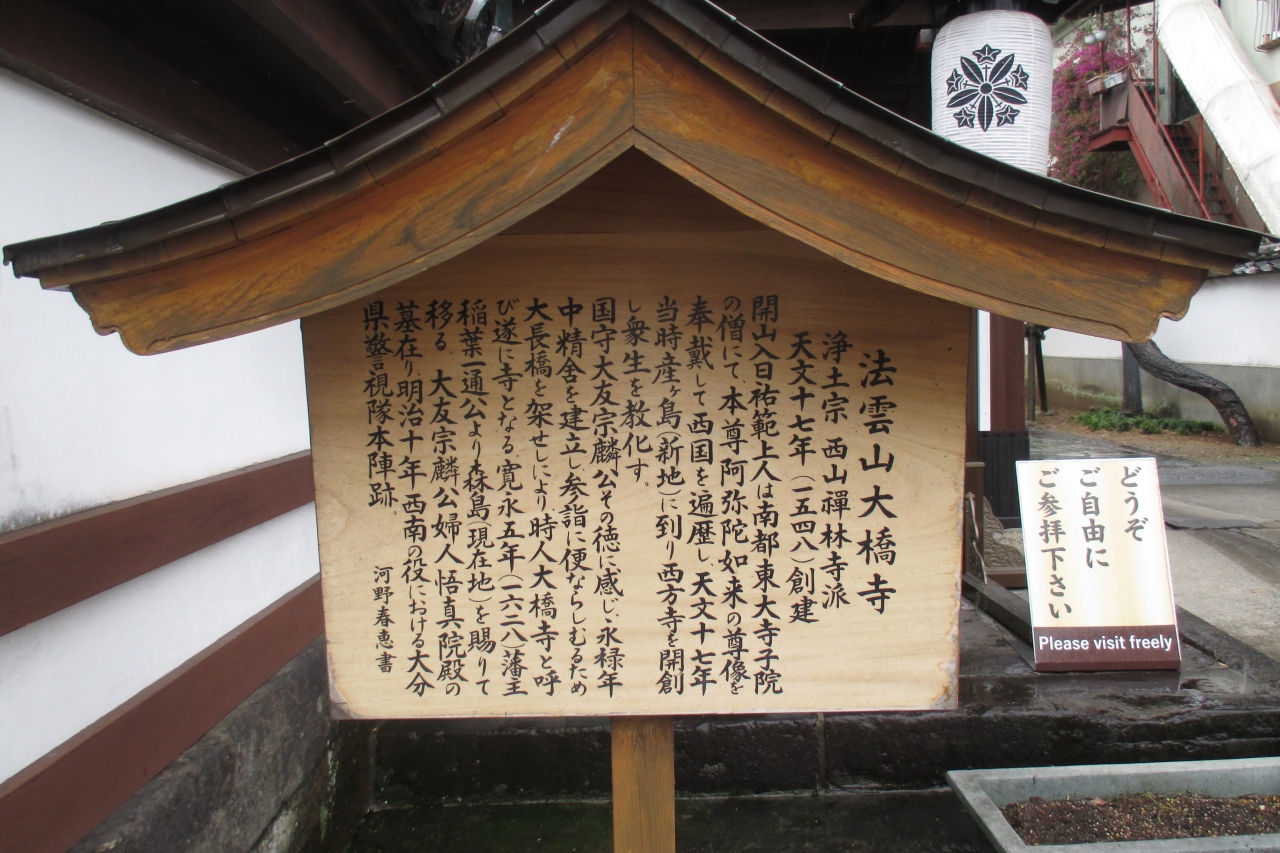 法雲山大橋寺
浄土宗 西山禪林寺派
天文十七年(一五四八)創建
開山入日祐範上人は南都東大寺子院
の僧にて、本尊阿弥陀如来の尊像を
奉戴して西国を遍歴し、天文十七年
当時産ヶ島(新地)に到り西方寺を開創
し衆生を教化す。
国守大友宗麟公その徳に感じ、永禄年
中精舎を建立し参詣に便ならしむるため
大長橋を架せしにより時人大橋寺と呼
び遂に寺となる 寛永五年(一六二八)藩主
稲葉一通公より森島(現在地)を賜りて
移る 大友宗麟公婦人悟真院殿の
墓在り、明治十年西南の役における大分
県警視隊本陣跡。
河野春恵書
どうぞ
ご自由に
ご参拝下さい
Please visit freely